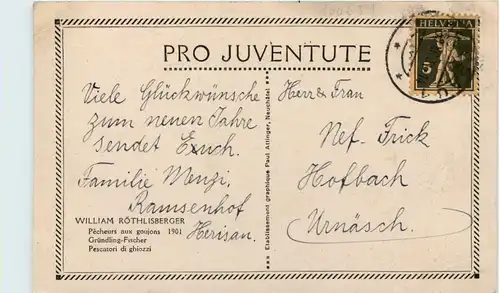 PRO JUVENTUTE
HELVETIA
5
Viele Glückwünsche
zum neuen Jahre
sendet Euch.
Familie Menzi,
Ramsenhof
Herisau.
WILLIAM RÖTHLISBERGER
Pêcheurs aux goujons 1901
Gründling-Fischer
Pescatori di ghiozzi
Etablissement graphique Paul Attinger, Neuchâtel
Herr & Frau
Nef-Frick
Hofbach
Urnäsch.